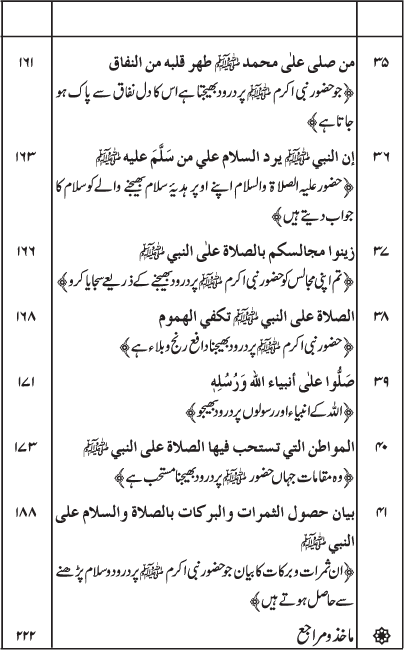 ۳۵ من صلى على محمد ﷺ طهر قلبه من النفاق ۱۶۱
﴿جو حضور نبی اکرم ﷺ پر درود بھیجتا ہے اس کا دل نفاق سے پاک ہو
جاتا ہے﴾
۳۶ إن النبي ﷺ يرد السلام علي من سَلَّمَ عليه ﷺ ۱۶۳
﴿حضور علیہ الصلاۃ والسلام اپنے اوپر ہدیۂ سلام بھیجنے والے کو سلام کا
جواب دیتے ہیں﴾
۳۷ زينوا مجالسكم بالصلاة على النبي ﷺ ۱۶۶
﴿تم اپنی مجالس کو حضور نبی اکرم ﷺ پر درود بھیجنے کے ذریعے سجایا کرو﴾
۳۸ الصلاة على النبي ﷺ تكفي الهموم ۱۶۸
﴿حضور نبی اکرم ﷺ پر درود بھیجنا دافع رنج و بلاء ہے﴾
۳۹ صَلُّوا على أنبياء الله وَرُسُلِهِ ۱۷۱
﴿اللہ کے انبیاء اور رسولوں پر درود بھیجو﴾
۴۰ المواطن التي تستحب فيها الصلاة على النبي ﷺ ۱۷۳
﴿وہ مقامات جہاں حضور ﷺ پر درود بھیجنا مستحب ہے﴾
۴۱ بيان حصول الثمرات والبركات بالصلاة والسلام على ۱۸۸
النبي ﷺ
﴿ان ثمرات و برکات کا بیان جو حضور نبی اکرم ﷺ پر درود و سلام پڑھنے
سے حاصل ہوتے ہیں﴾
ماخذ و مراجع ۲۲۲